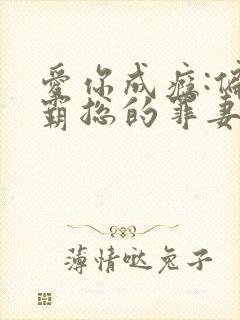 爱你成瘾:偏
霸总的罪妻
薄情哒兔子